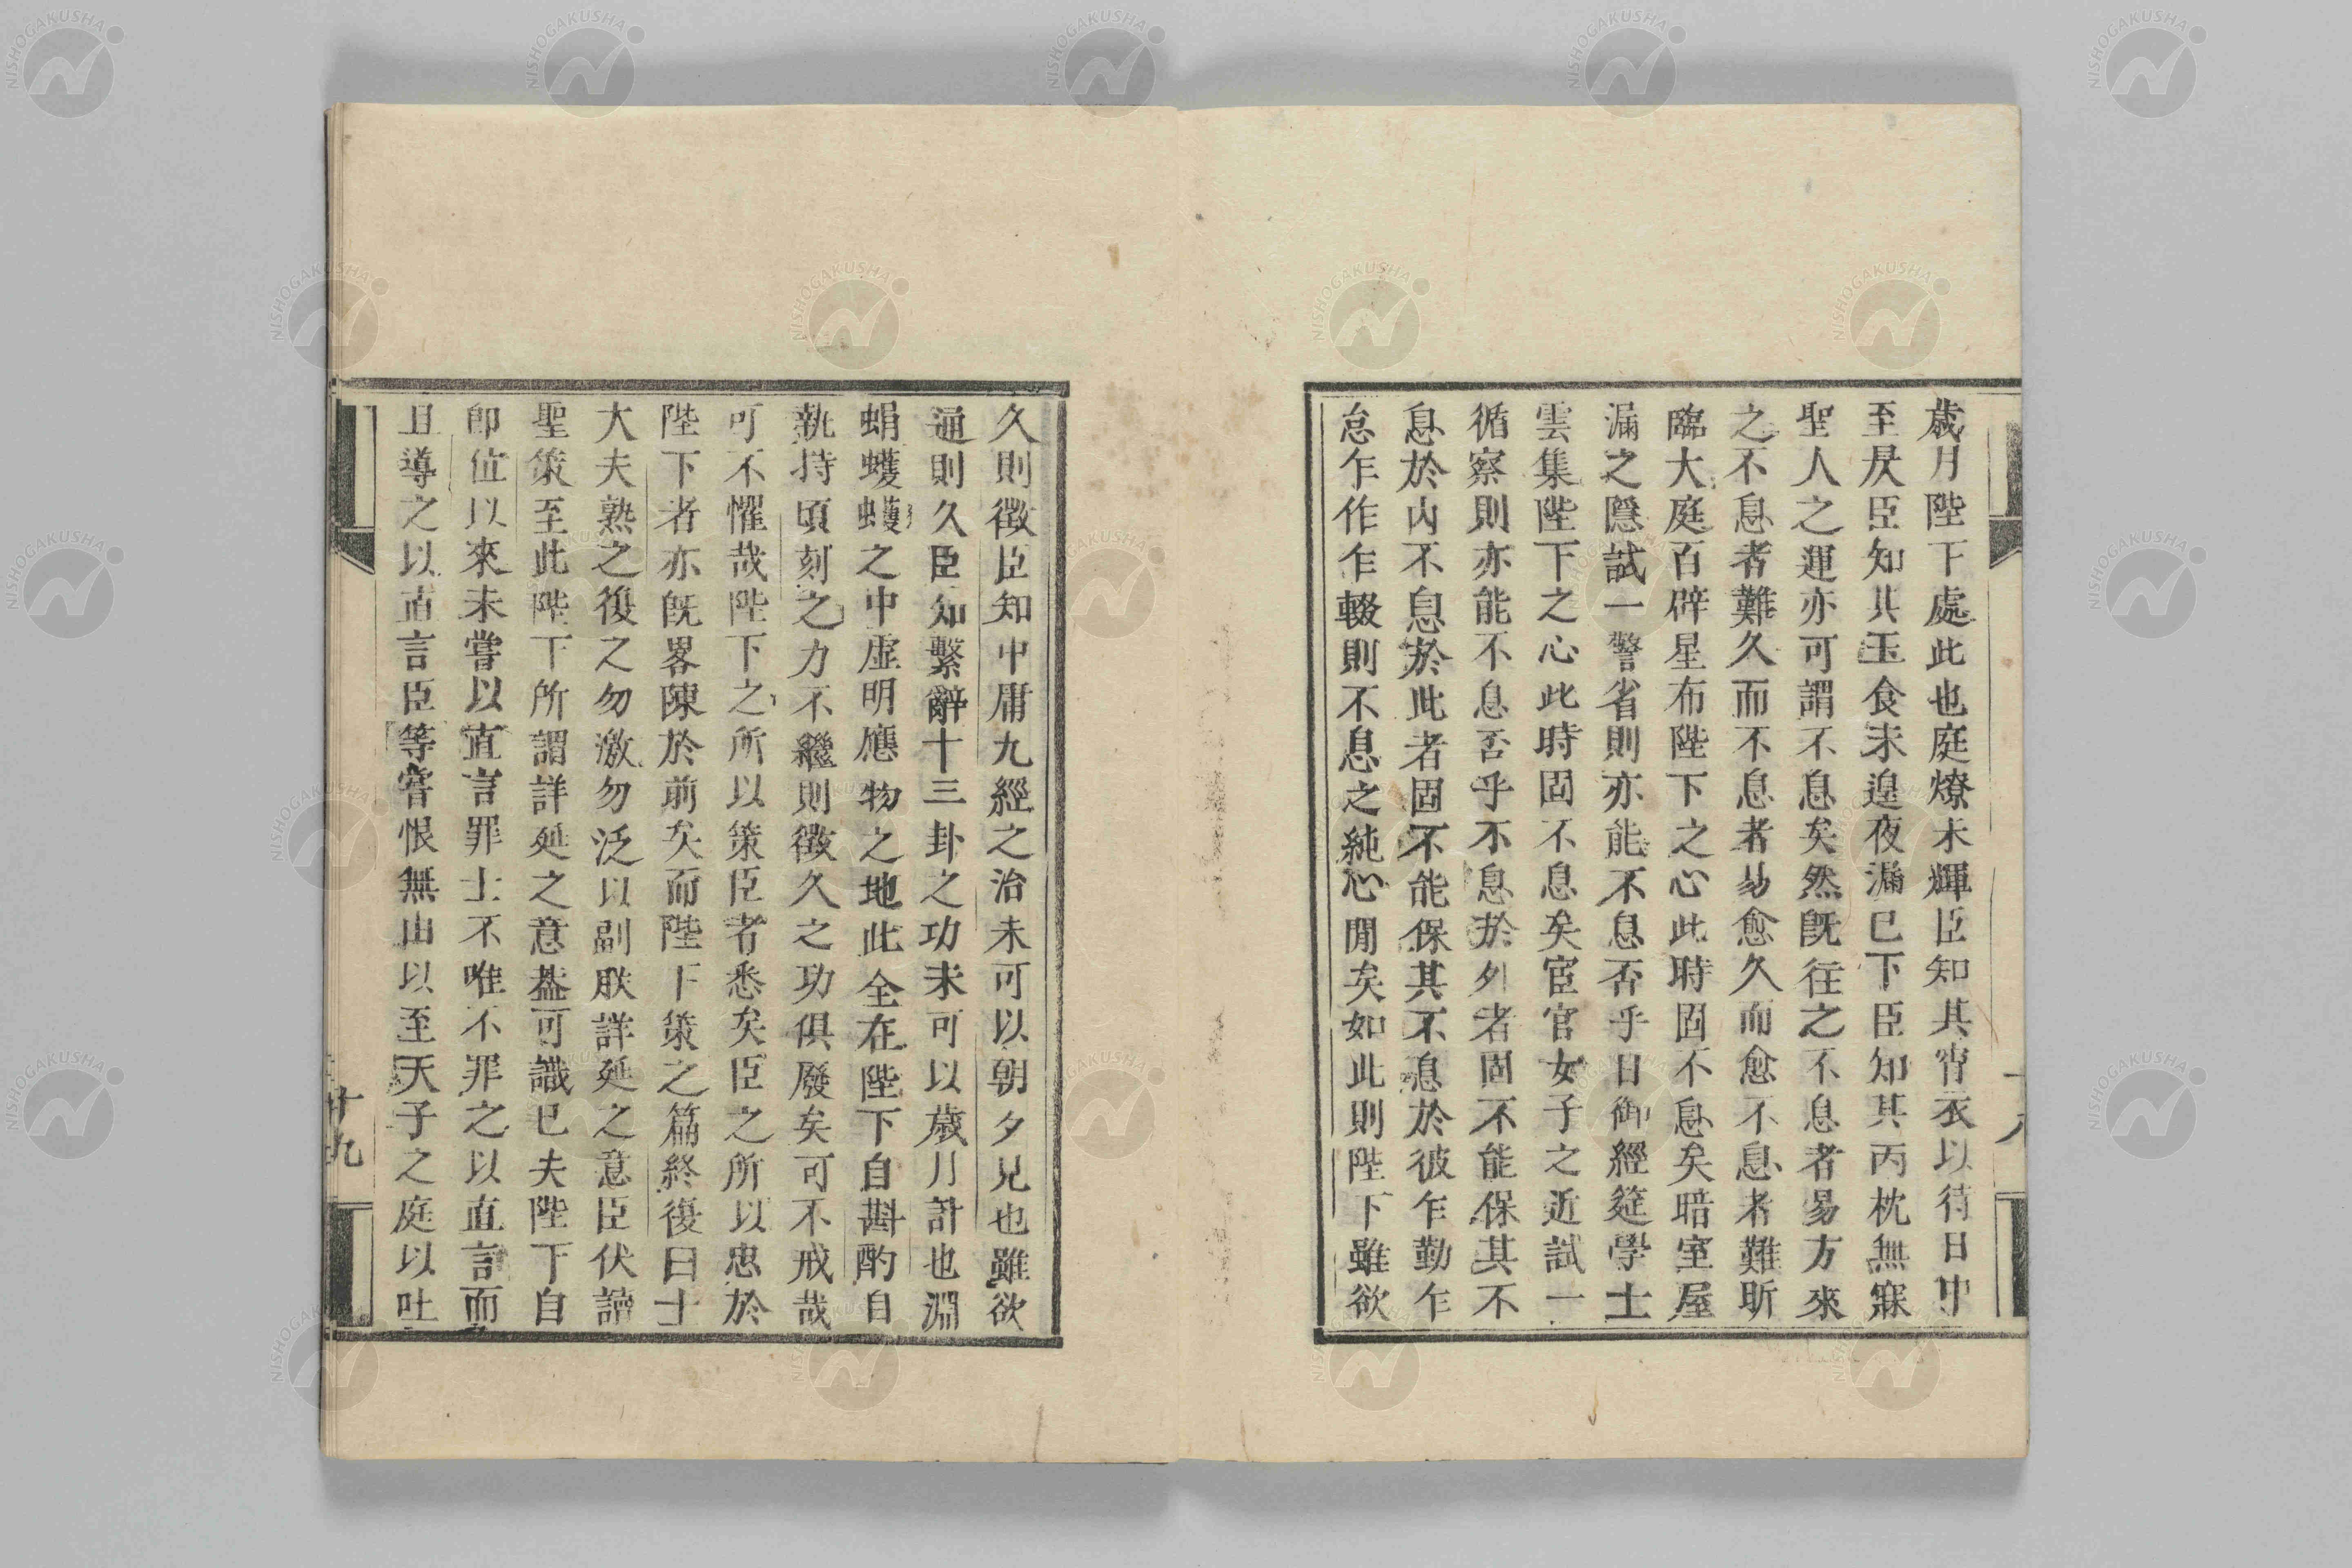 歲月陛下處此也庭燎未輝臣知其宵衣以待日中
至昃臣知其玉食未遑夜漏已下臣知其丙枕無寐
聖人之運亦可謂不息矣然既往之不息者易方來
之不息者難久而不息者易愈久而愈不息者難昕
臨大庭百辟星布陛下之心此時固不息矣暗室屋
漏之隱試一警省則亦能不息否乎日御經筵學士
雲集陛下之心此時固不息矣宦官女子之近試一
循察則亦能不息否乎不息於外者固不能保其不
息於內不息於此者固不能保其不息於彼乍勤乍
怠乍作乍輟則不息之純心閒矣如此則陛下雖欲
久則徵臣知中庸九經之治未可以朝夕見也雖欲
通則久臣知繫辭十三卦之功未可以歲月計也淵
蜎蠖濩之中虛明應物之地此全在陛下自斟酌自
執持頃刻之力不繼則徵久之功俱廢矣可不戒哉
可不懼哉陛下之所以策臣者悉矣臣之所以忠於
陛下者亦既畧陳於前矣而陛下策之篇終復曰士
大夫熟之復之勿激勿泛以副朕詳延之意臣伏讀
聖策至此陛下所謂詳延之意蓋可識已夫陛下自
卽位以來未嘗以直言罪士不唯不罪之以直言而
且導之以直言臣等嘗恨無由以至天子之庭以吐
十八
十九
NISHOGAKUSHA